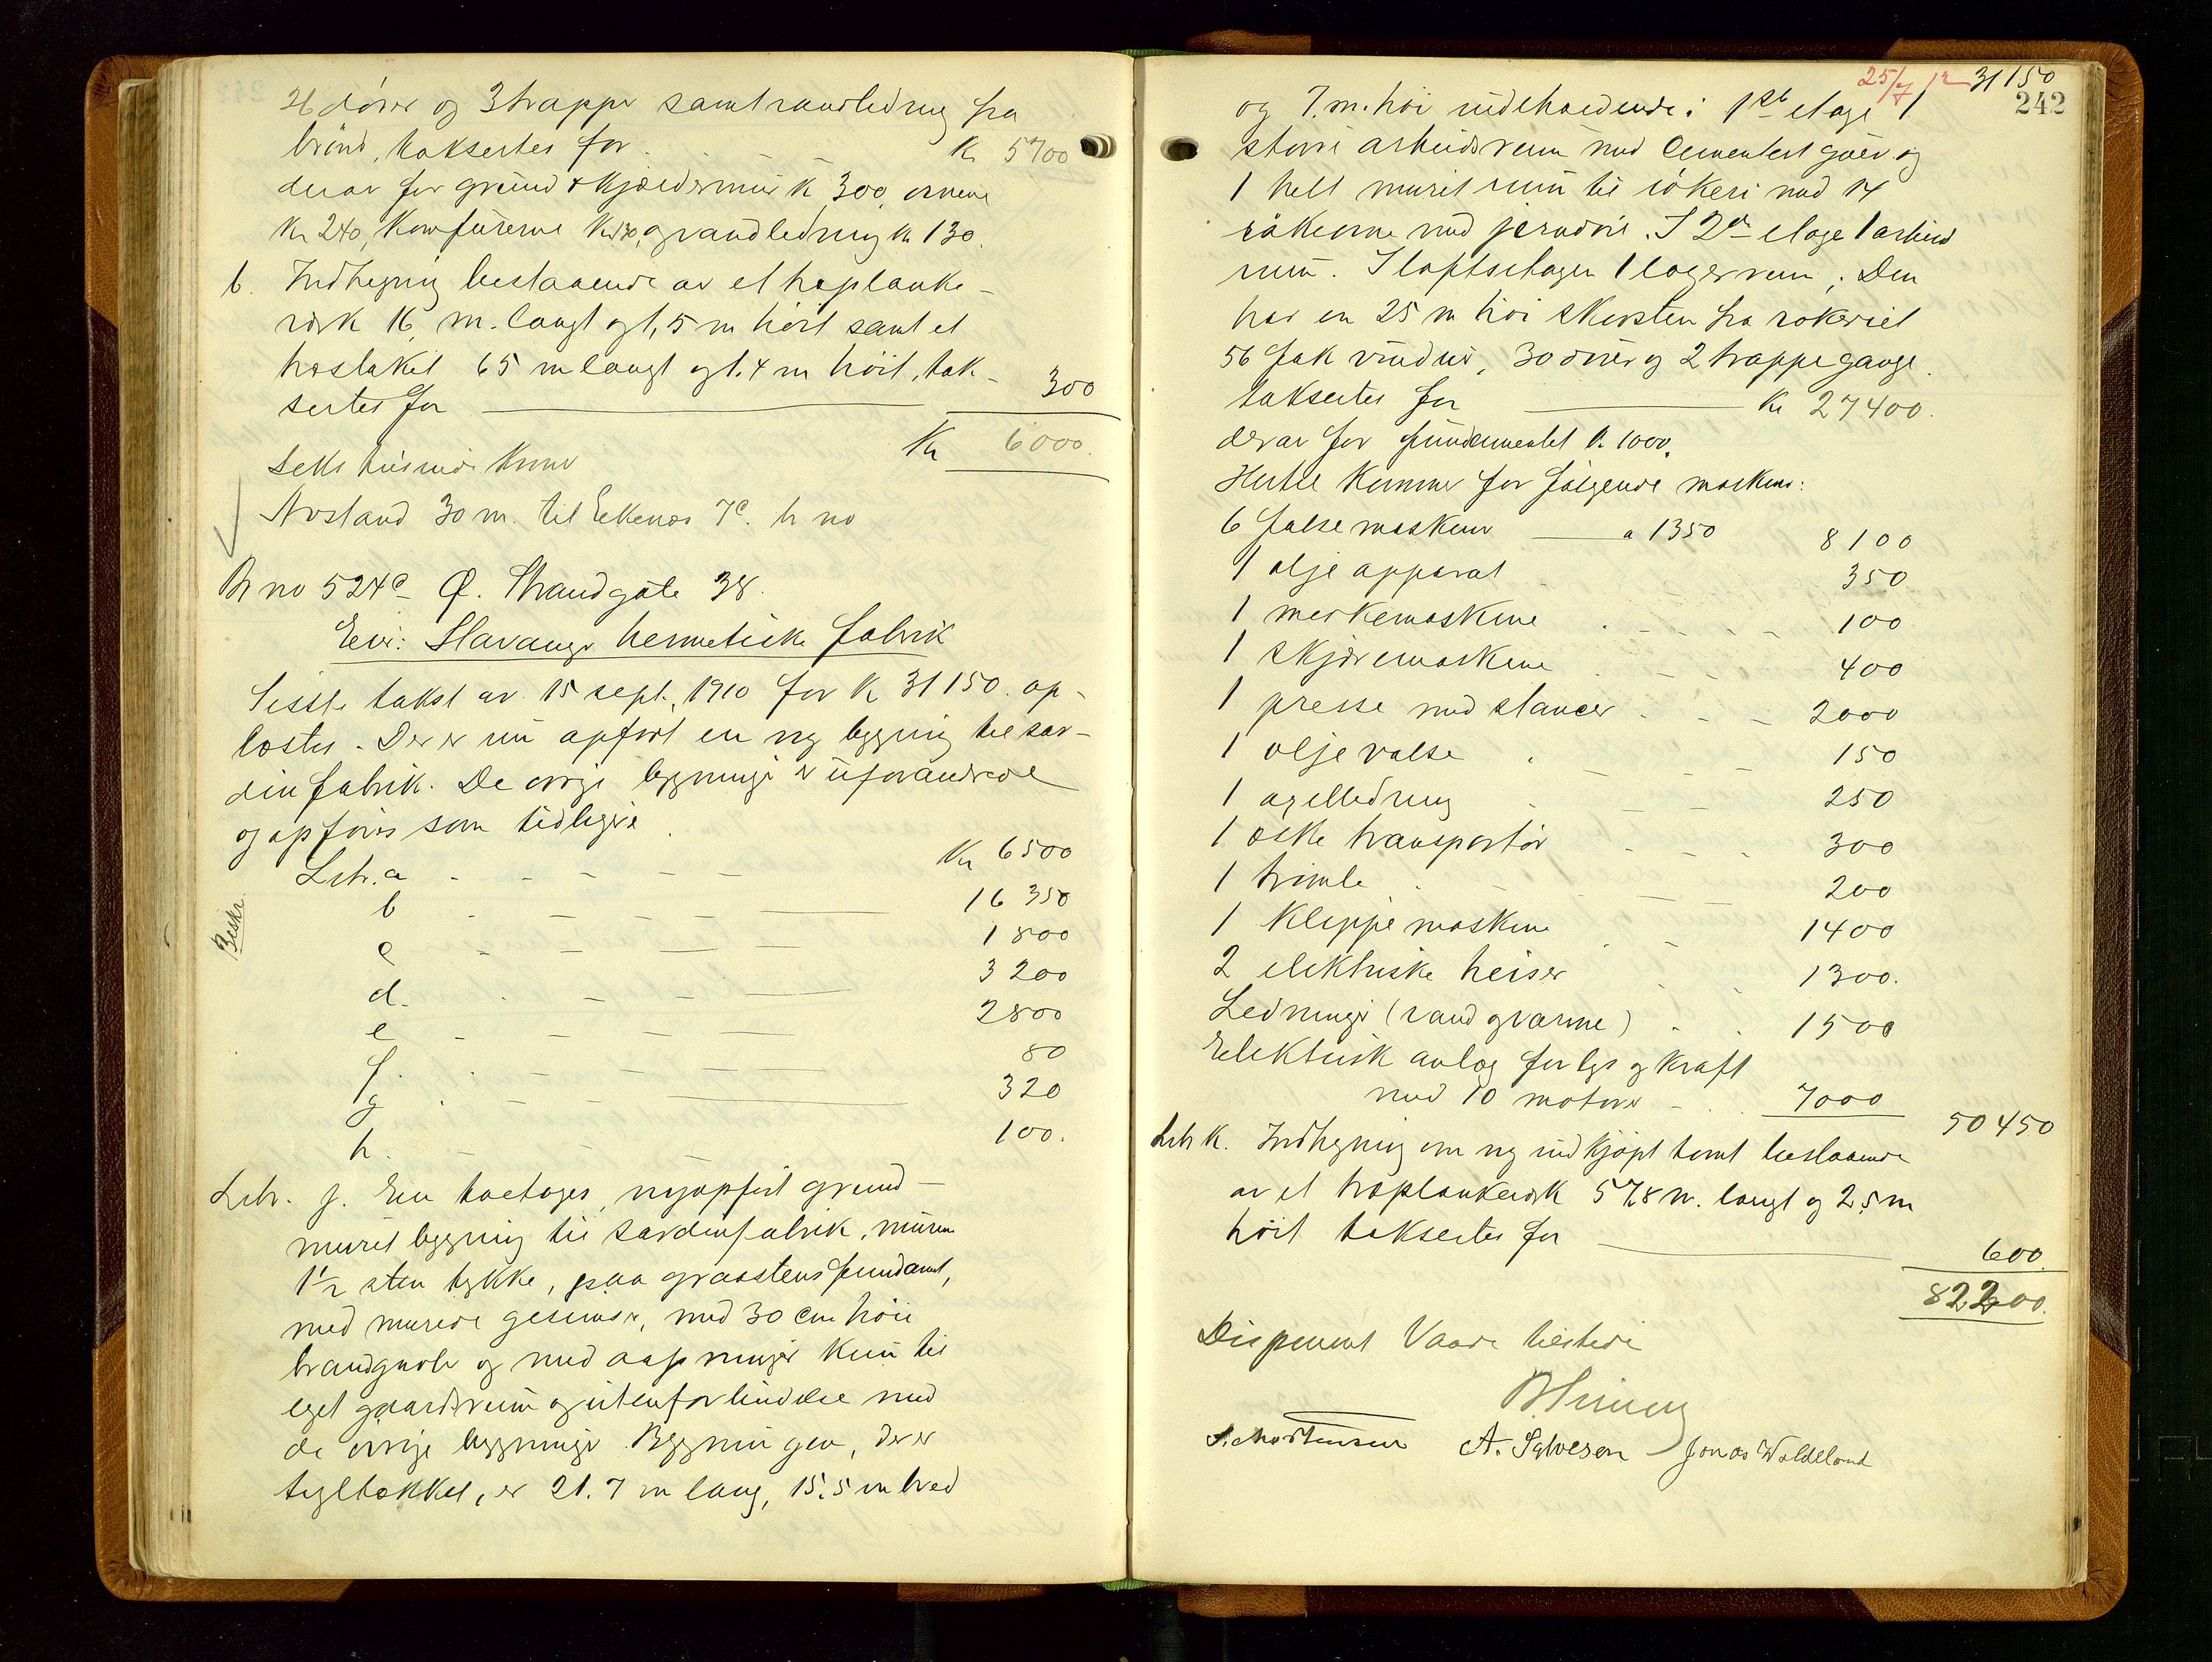 26 dører og 3 trapper samt vandledning fra
brønd, taksertes for Kr 5700
derav for grund & kjældermur K 300, ovnene
Kr 240, Komfürerne Kr 130, og vandledning Kr 130.
b. Indhegning bestaaende av et træplanke-
værk 16 m. langt og 1,5 m høit samt et
træstakit 65 m langt og 1.4 m høit, tak-
sertes for 300
Kr 6000.
Seks tusinde kroner
Avstand 30 m. til Eekenæs 7c. tr no
Br no 524c Ø. Strandgate 38.
Eier: Stavanger hermetiske fabrik
Sisste takst av 15 sept. 1910 for K 31150. op-
læstes. Der er nu opført en ny bygning til sar-
dinfabrik. De øvrige bygninger er uforandrede
og opføres som tidligere
Litr. a Kr 6500
b 16 350
c 1 800
Beskr
d. 3 200
e 2800
f. 80
g 320
h. 100.
Litr. j. En toetages, nyopført grund-
muret bygning til sardinfabrik, muren
1½ sten tykke, paa graastensfundamt,
med murede gesimser, med 30 cm høie
brandgavle og med aapninger kun til
eget gaardsrum og uten forbindelse med
de øvrige bygninger. Bygningen, der er
tegltækket, er 21.7 m lang, 15.5 m bred
25/7 12 31 150
242
og 7. m. høi indeholdende i 1ste etage 1
større arbeidsrum med cementert gulv og
1 helt muret rum til røkeri med 14
røkovne med jerndør. I 2den etage 1 arbeids
rum. I loftsetagen 1 lagerrum. Den
har en 25 m høi skorsten fra røkeriet
56 fak vinduer, 30 dører og 2 trappegange.
taksertes for Kr 27400.
derav for fundamentet Kr 1000.
Hertil kommer for følgende maskiner:
6 falsemaskiner a 1350 8100
1 oljeapparat 350
1 merkemaskine 100
1 skjæremaskine 400
1 presse med stancer 2000
1 oljevalse 150
1 axelledning 250
1 æske transportør 300
1 trimle 200
1 klippemaskine 1400
2 elektriske heiser 1300.
Ledninger (vand og varme) 1500
Elektrisk anlæg for lys og kraft
med 10 motorer 7000
50 450
Litr k. Indhegning om ny indkjøpt tomt bestaaende
av et træplankeværk 57,8 m. langt og 2,5 m
høit taksertes for 600.
82200.
Disponent Vaare tilstede
S. Mortensen A. Salvesen Jonas Woldeland